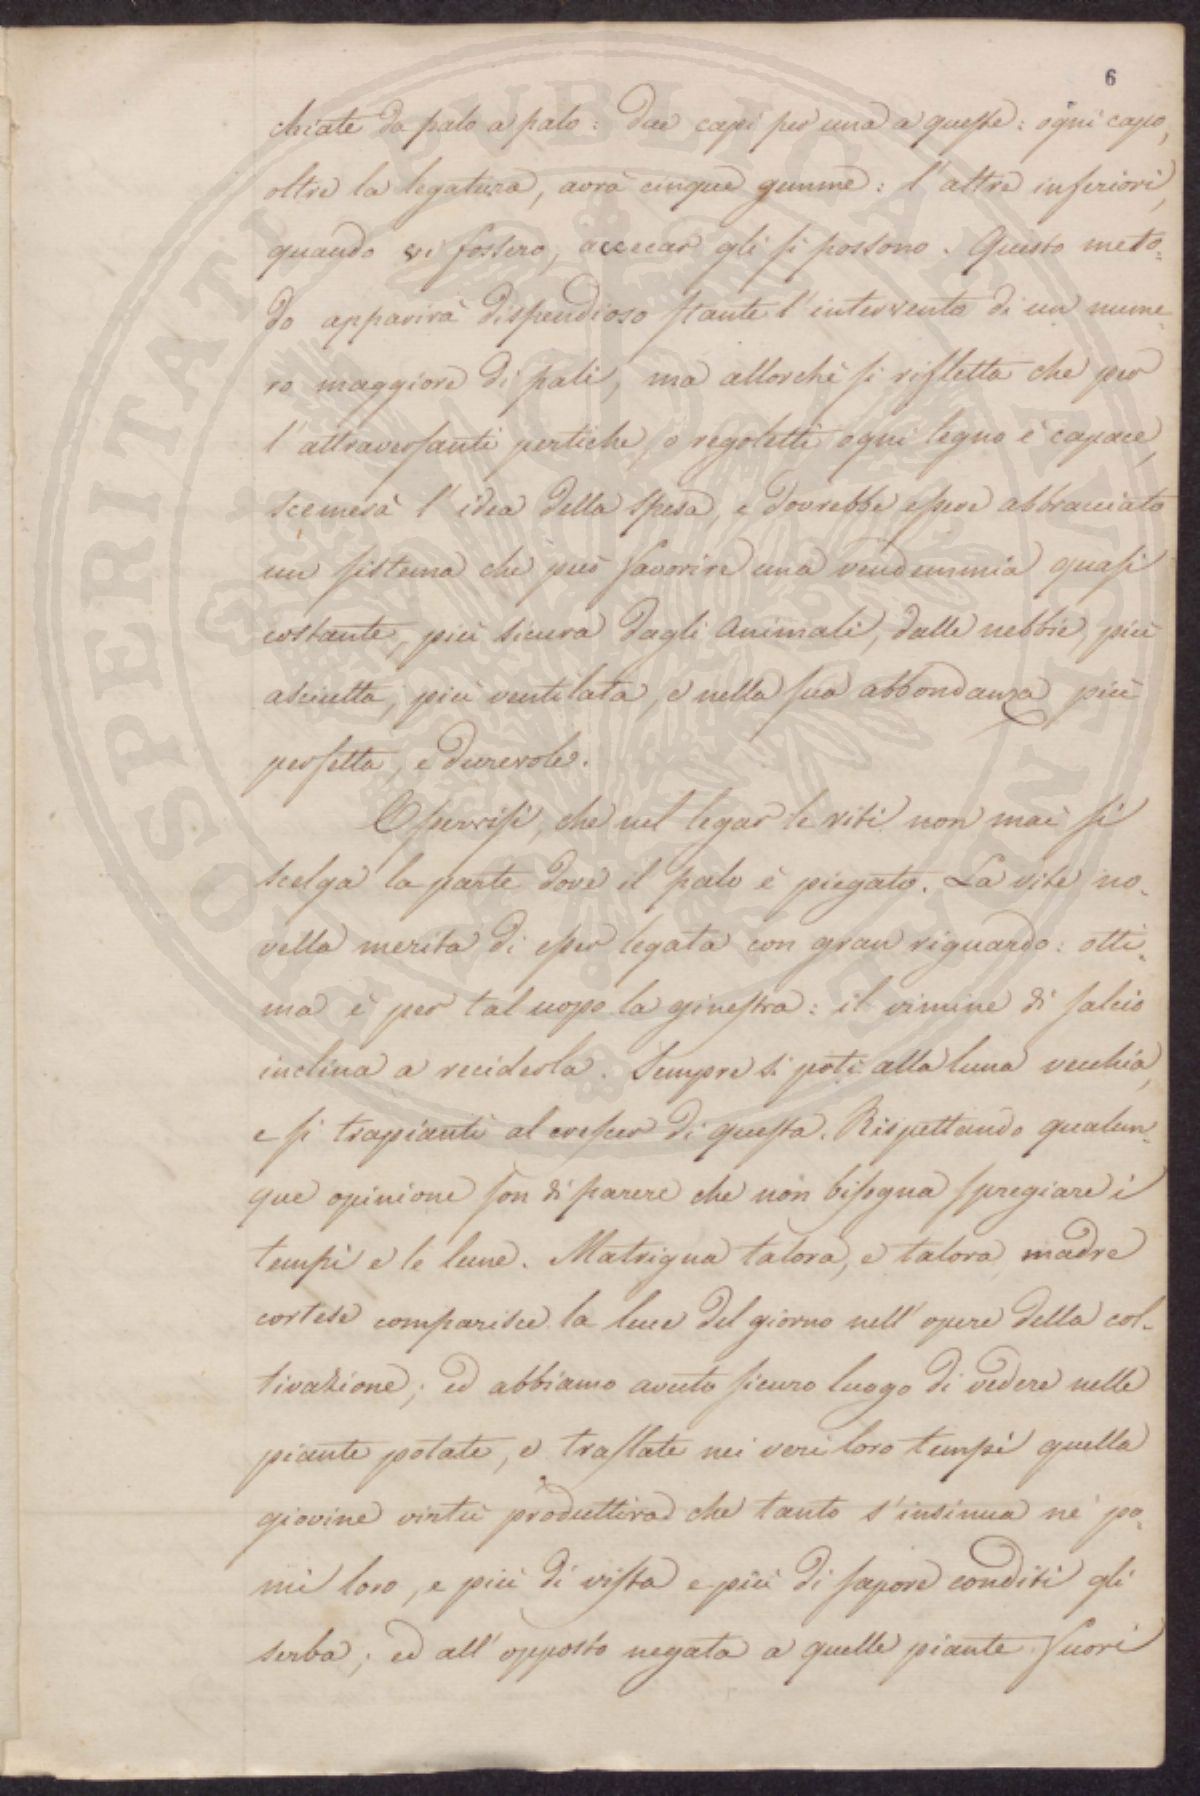 6
chiate da palo a palo: due capi per una a queste: ogni capo,
oltre la legatura, avrà cinque gemme: l'altre inferiori,
quando vi fossero, accecar gli si possono. Questo meto-
do apparirà dispendioso stante l'intervento di un nume-
ro maggiore di pali, ma allorchè si rifletta che per
l'attraversanti pertiche, o regoletti ogni legno è capace,
scemerà l'idea della spesa, e dovrebbe essere abbracciato
un sistema che può favorire una vendemmia quasi
costante, più sicura dagli animali, dalle nebbie, più
asciutta, più ventilata, e nella sua abbondanza più
perfetta, e durevole.
Osservisi, che nel legar le viti non mai si
scelga la parte dove il palo è piegato. La vite no-
vella merita di esser legata con gran riguardo: otti-
ma è per tal uopo la ginestra: il vimine di salcio
inclina a reciderla. Sempre si poti alla luna vecchia,
e si trapianti al crescer di questa. Rispettando qualun-
que opinione son di parere che non bisogna spregiare i
tempi e le lune. Matrigna talora, e talora madre
cortese comparisce la luce del giorno nell'opere della col-
tivazione; ed abbiamo avuto sicuro luogo di vedere nelle
piante potate, e traslate nei veri loro tempi quella
giovine virtù produttiva che tanto s'insinua ne' po-
mi loro, e più di vista e più di sapore conditi gli
serba; ed all'opposto negata a quelle piante fuori
PROSPERITATI PUBLICAE AUGENDAE